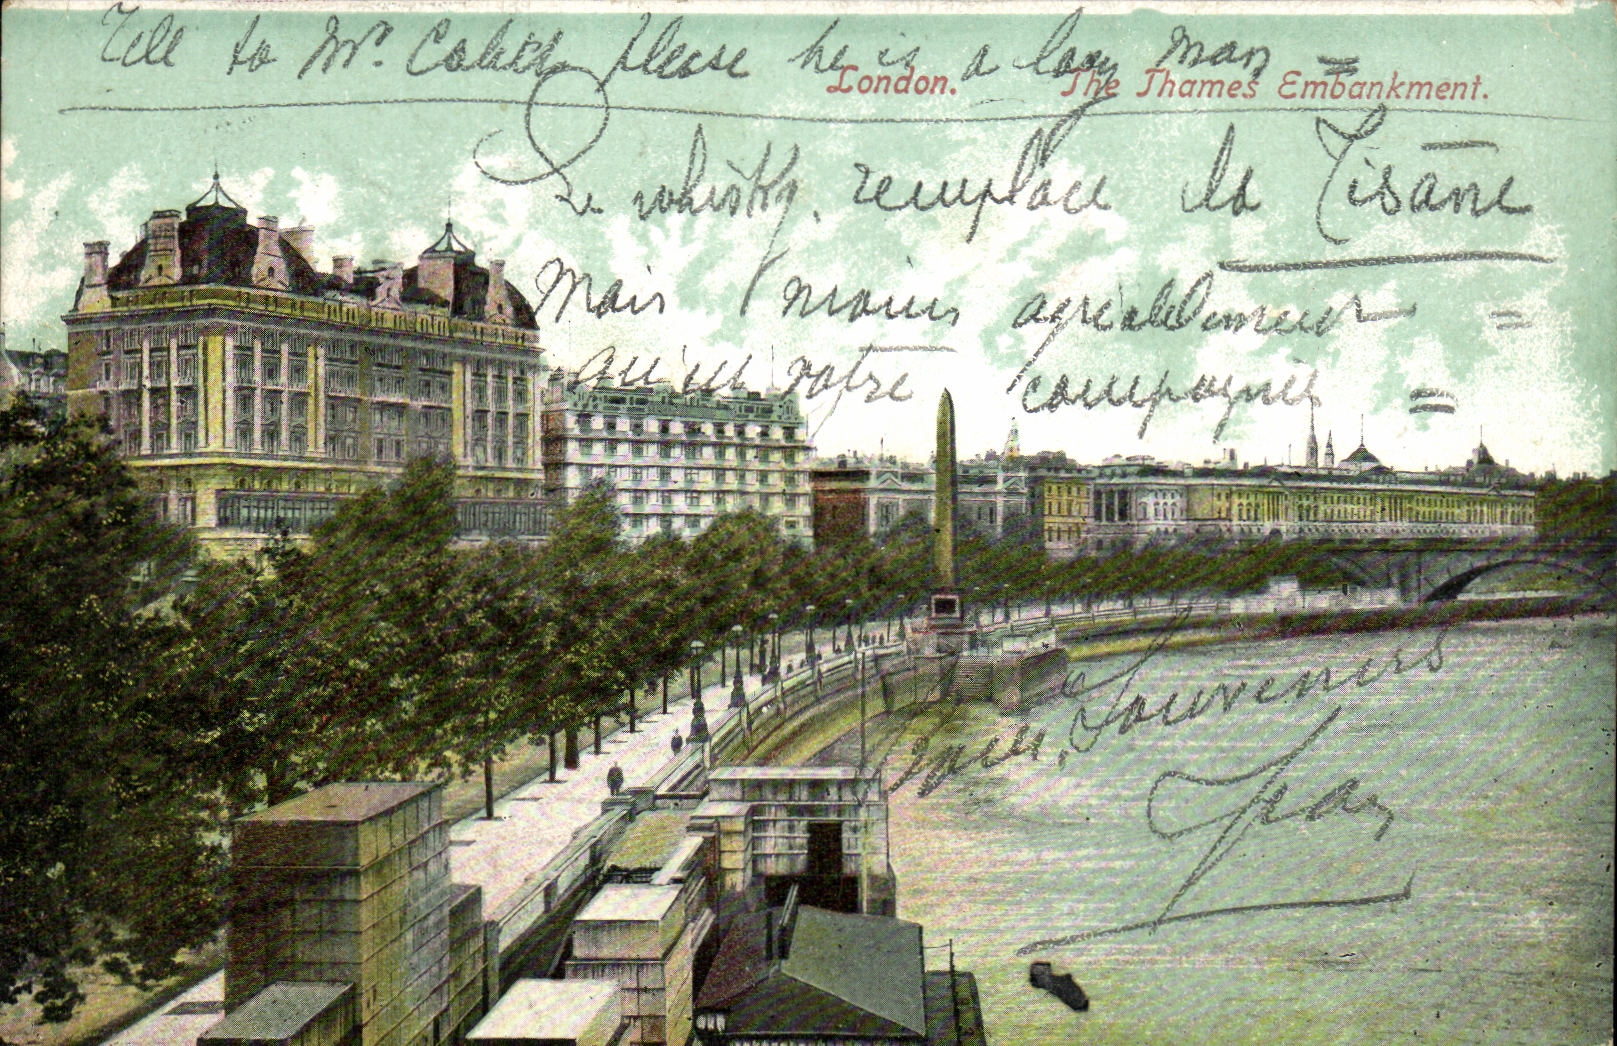 Tell to Mr. please he is a lazy man =
London. The Thames Embankment.
Le whisky remplace la Tisane
Mais moins agréablement =
qu'en votre compagnie =
Souvenirs